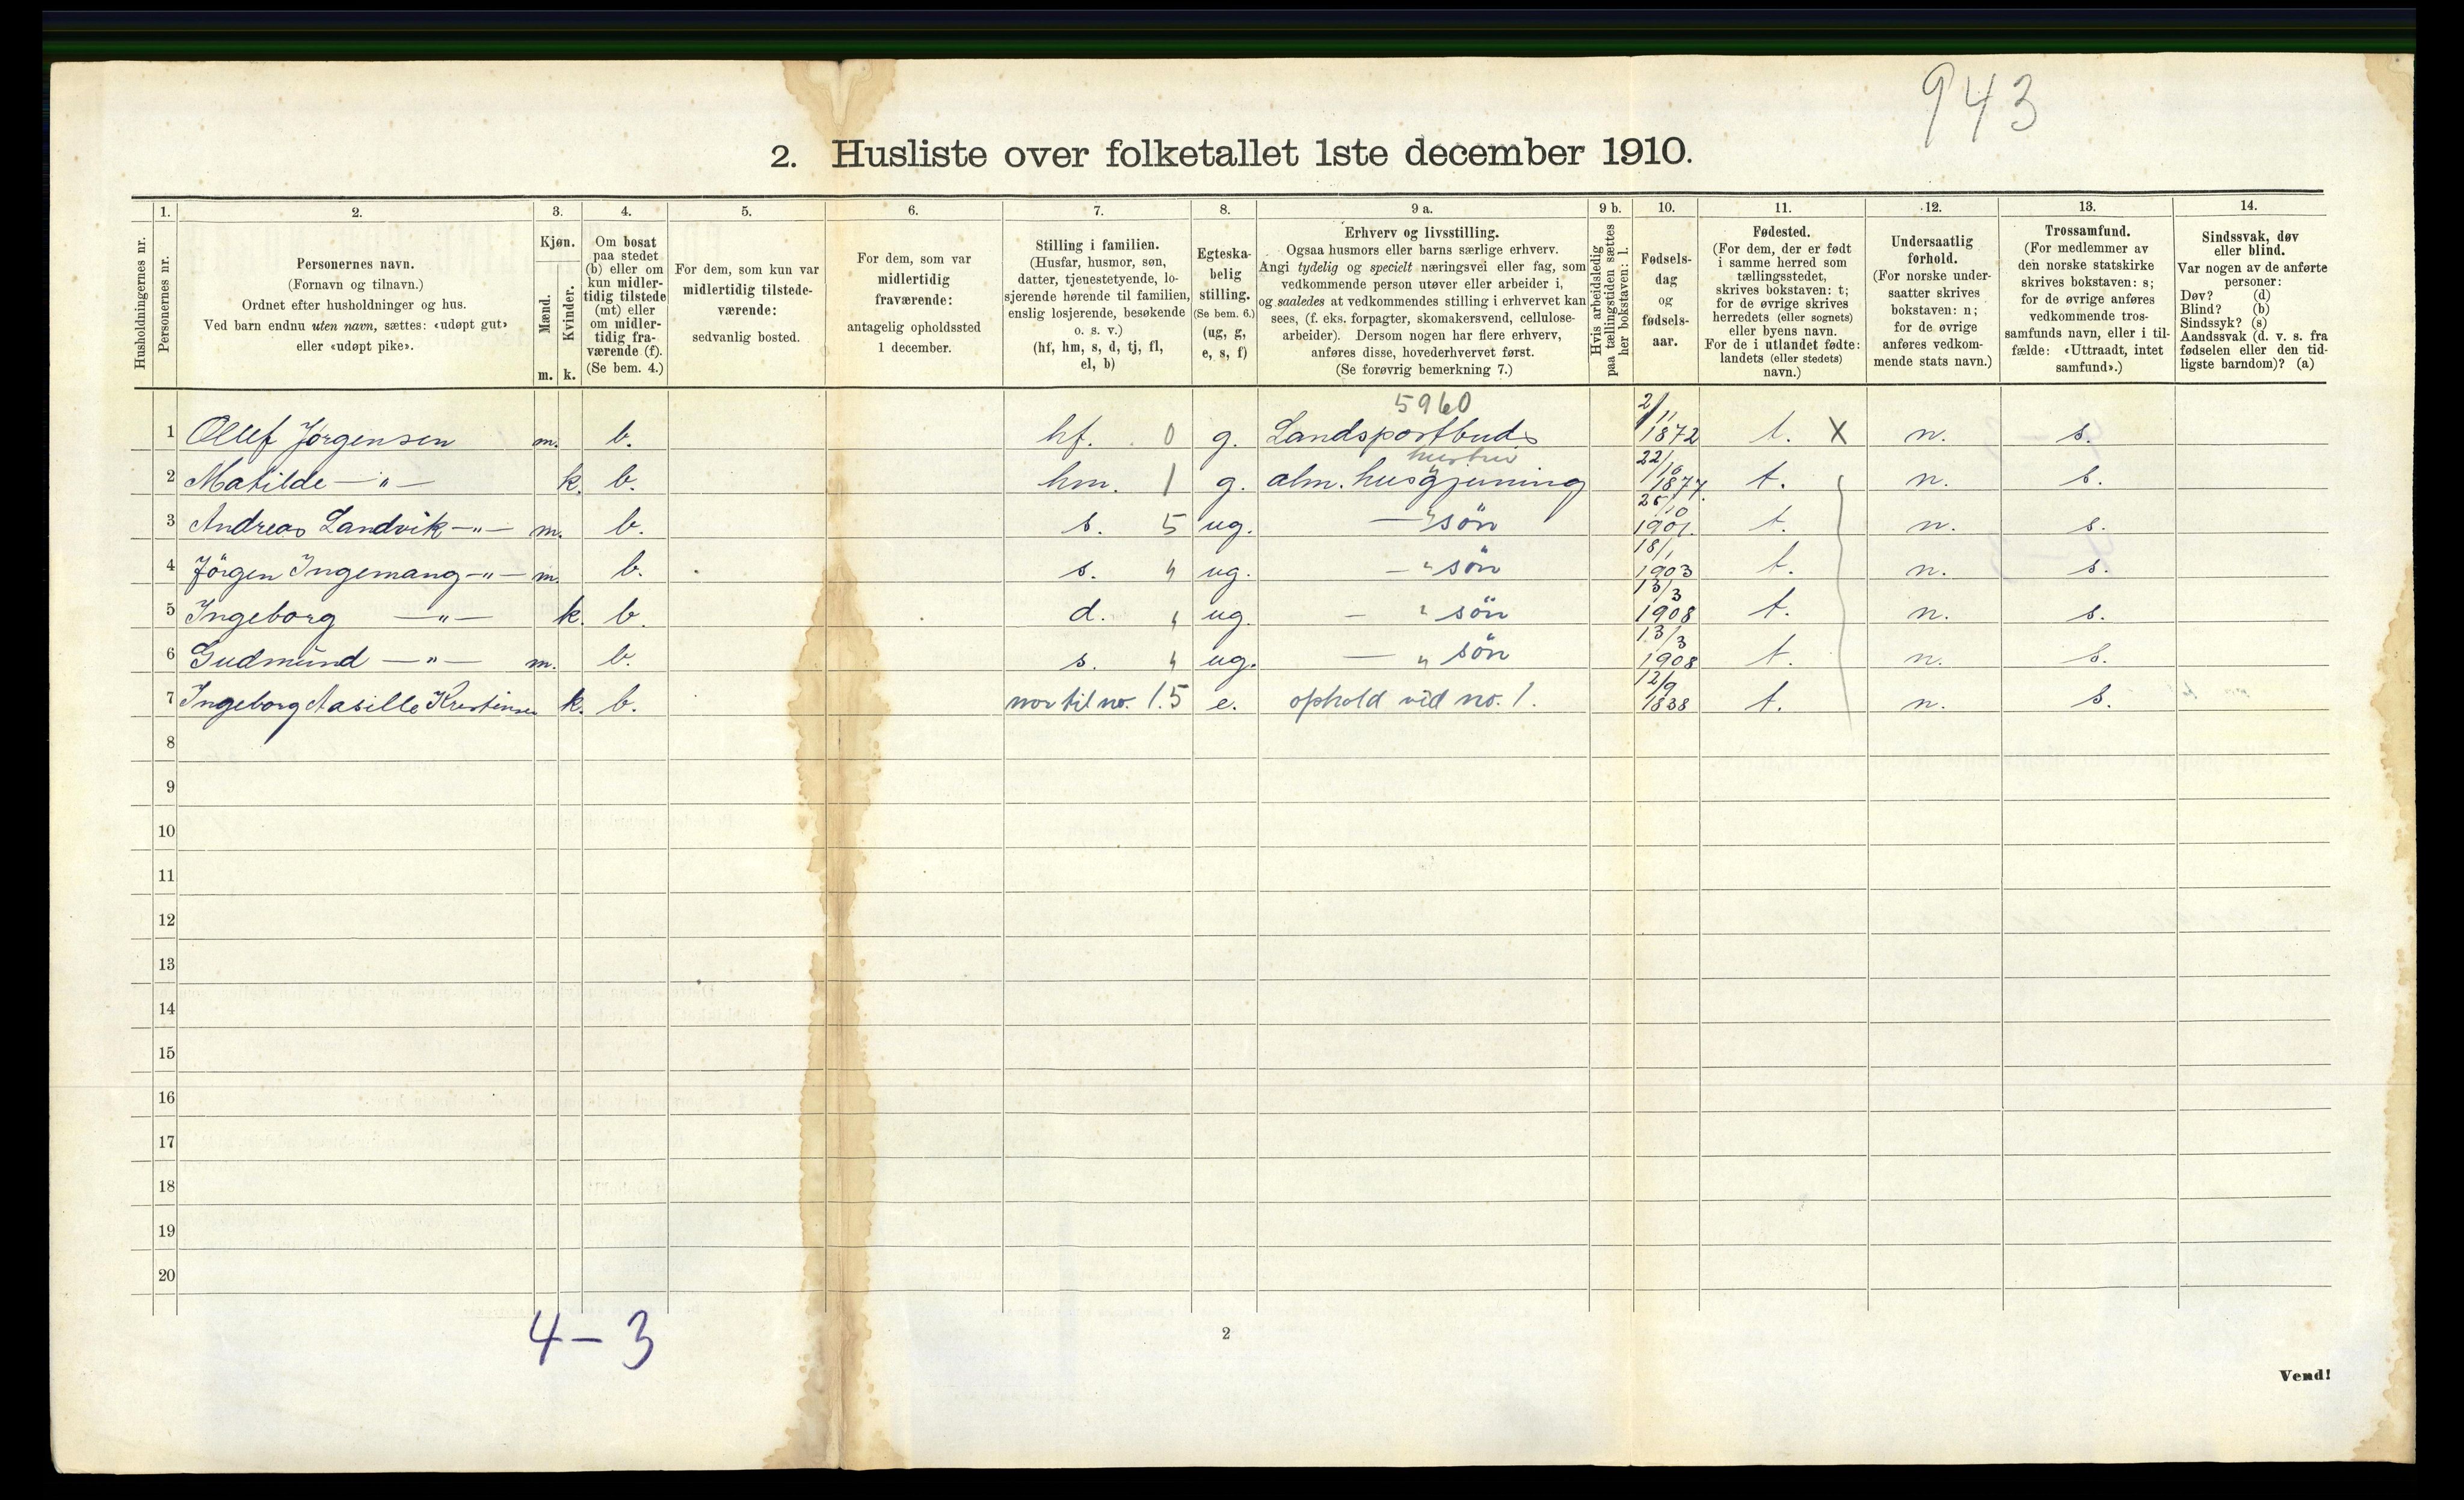 943
2. Husliste over folketallet 1ste december 1910.
1. 2. 3. 4. 5. 6. 7. 8. 9 a. 9 b. 10. 11. 12. 13. 14.
Husholdningernes nr.
Personernes nr.
Personernes navn.
(Fornavn og tilnavn.)
Ordnet efter husholdninger og hus.
Ved barn endnu uten navn, sættes: «udøpt gut»
eller «udøpt pike».
Kjøn.
Mænd.
Kvinder.
m. k.
Om bosat
paa stedet
(b) eller om
kun midler-
tidig tilstede
(mt) eller
om midler-
tidig fra-
værende (f).
(Se bem. 4.)
For dem, som kun var
midlertidig tilstede-
værende:
sedvanlig bosted.
For dem, som var
midlertidig
fraværende:
antagelig opholdssted
1 december.
Stilling i familien.
(Husfar, husmor, søn,
datter, tjenestetyende, lo-
sjerende hørende til familien,
enslig losjerende, besøkende
o. s. v.)
(hf, hm, s, d, tj, fl,
el, b)
Egteska-
belig
stilling.
(Se bem. 6.)
(ug, g,
e, s, f)
Erhverv og livsstilling.
Ogsaa husmors eller barns særlige erhverv.
Angi tydelig og specielt næringsvei eller fag, som
vedkommende person utøver eller arbeider i,
og saaledes at vedkommendes stilling i erhvervet kan
sees, (f. eks. forpagter, skomakersvend, cellulose-
arbeider). Dersom nogen har flere erhverv,
anføres disse, hovederhvervet først.
(Se forøvrig bemerkning 7.)
Hvis arbeidsledig
paa tællingstiden sættes
her bokstaven: l.
Fødsels-
dag
og
fødsels-
aar.
Fødested.
(For dem, der er født
i samme herred som
tællingsstedet,
skrives bokstaven: t;
for de øvrige skrives
herredets (eller sognets)
eller byens navn.
For de i utlandet fødte:
landets (eller stedets)
navn.)
Undersaatlig
forhold.
(For norske under-
saatter skrives
bokstaven: n;
for de øvrige
anføres vedkom-
mende stats navn.)
Trossamfund.
(For medlemmer av
den norske statskirke
skrives bokstaven: s;
for de øvrige anføres
vedkommende tros-
samfunds navn, eller i til-
fælde: «Uttraadt, intet
samfund».)
Sindssvak, døv
eller blind.
Var nogen av de anførte
personer:
Døv? (d)
Blind? (b)
Sindssyk? (s)
Aandssvak (d. v. s. fra
fødselen eller den tid-
ligste barndom)? (a)
5960
1 Olluf Jörgensen m. b. hf. 0 g. Landspostbud 2/11 1872 t. X n. s.
hustru
2 Matilde —"— k. b. hm. 1 g. alm. husgjerning 22/10 1877. t. n. s.
3 Andreas Landvik —"— m. b. s. 5 ug. — " sön 25/10 1901. t. n. s.
4 Jörgen Ingemang —"— m. b. s. " ug. — " sön 18/1 1903 t. n. s.
5 Ingeborg —"— k. b. d. " ug. — " sön 13/3 1908 t. n. s.
6 Gudmund —"— m. b. s. " ug. — " sön 13/3 1908 t. n. s.
7 Ingeborg Aasille Kristensen k. b. mor til no. 1. 5 e. ophold ved no. 1. 12/9 1838 t. n. s.
8
9
10
11
12
13
14
15
16
17
18
19
20
4 — 3
2
Vend!